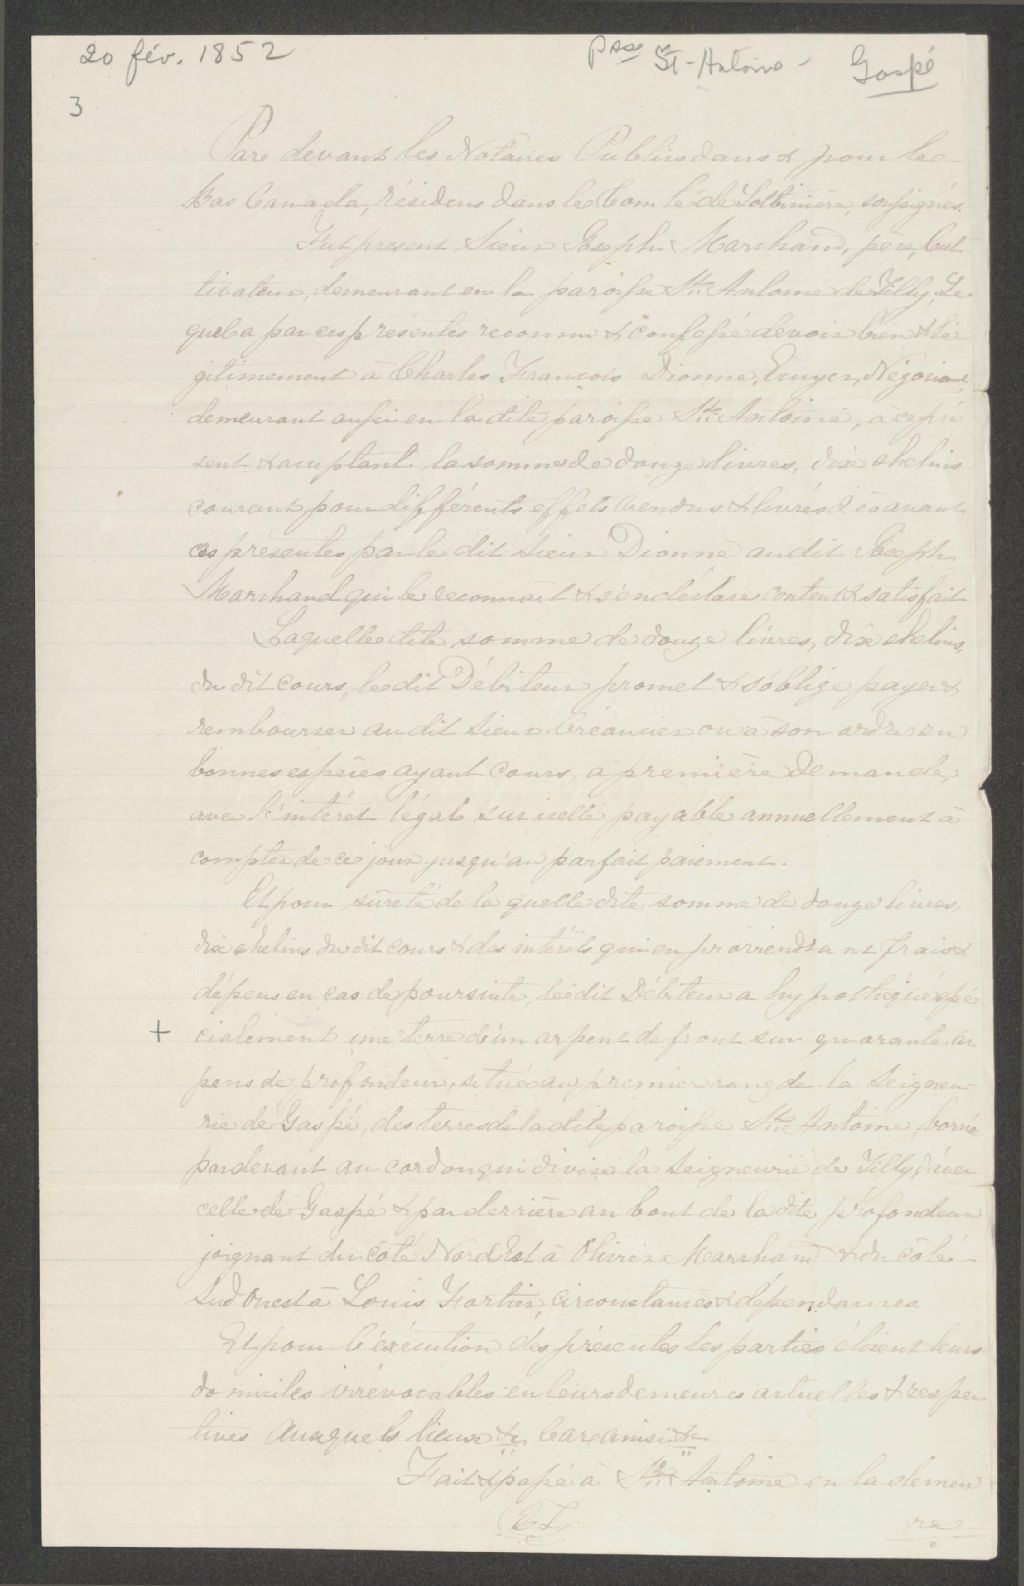 20 fév. 1852
Psse St-Antoine - Gaspé
3
Par devant les Notaires Publics dans & pour le
Bas Canada, résidens dans le Comté de Lotbinière, soussignés.
Fut present Sieur Joseph Marchand, père, Cul
tivateur, demeurant en la paroisse St. Antoine de Tilly, Le
quel a par ces présentes reconnu & confessé devoir bien & lé
gitimement à Charles François Dionne, Ecuyer, Négociant,
demeurant aussi en la dite paroisse St. Antoine, à ce pré
sent & acceptant la somme de douze livres, dix chelins
courant pour différents effets vendus & livrés dès avant
ces présentes par le dit Sieur Dionne au dit Joseph
Marchand qui le reconnait & s'en déclare content & satisfait
Laquelle dite somme de douze livres, dix chelins,
du dit cours, le dit Débiteur promet & s'oblige payer &
rembourser au dit Sieur Créancier ou à son ordre en
bonnes espèces ayant cours, à première demande,
avec l'intérêt légal sur icelle payable annuellement à
compter de ce jour jusqu'au parfait paiement.
Et pour sûreté de la quelle dite somme de douze livres,
dix chelins du dit cours & des intérêts qui en proviendrant frais &
dépens en cas de poursuite, le dit Débiteur a hypothéqué spé
+ cialement une terre d'un arpent de front sur quarante ar
pens de profondeur, située au premier rang de la Seigneu
rie de Gaspé, des terres de la dite paroisse St. Antoine, bornée
par devant au cordon qui divise la Seigneurie de Tilly d'avec
celle de Gaspé & par derrière au bout de la dite profondeur
joignant du côté Nord Est à Olivier Marchand & du côté
Sud Ouest à Louis Fortier, circonstances & dépendances.
Et pour l'éxécution des présentes les parties élisent leurs
domiciles irrévocables en leurs demeures actuelles & respec
tives Auxquels lieux &c. Car ainsi &c
Fait & passé à St. Antoine en la demeu
re